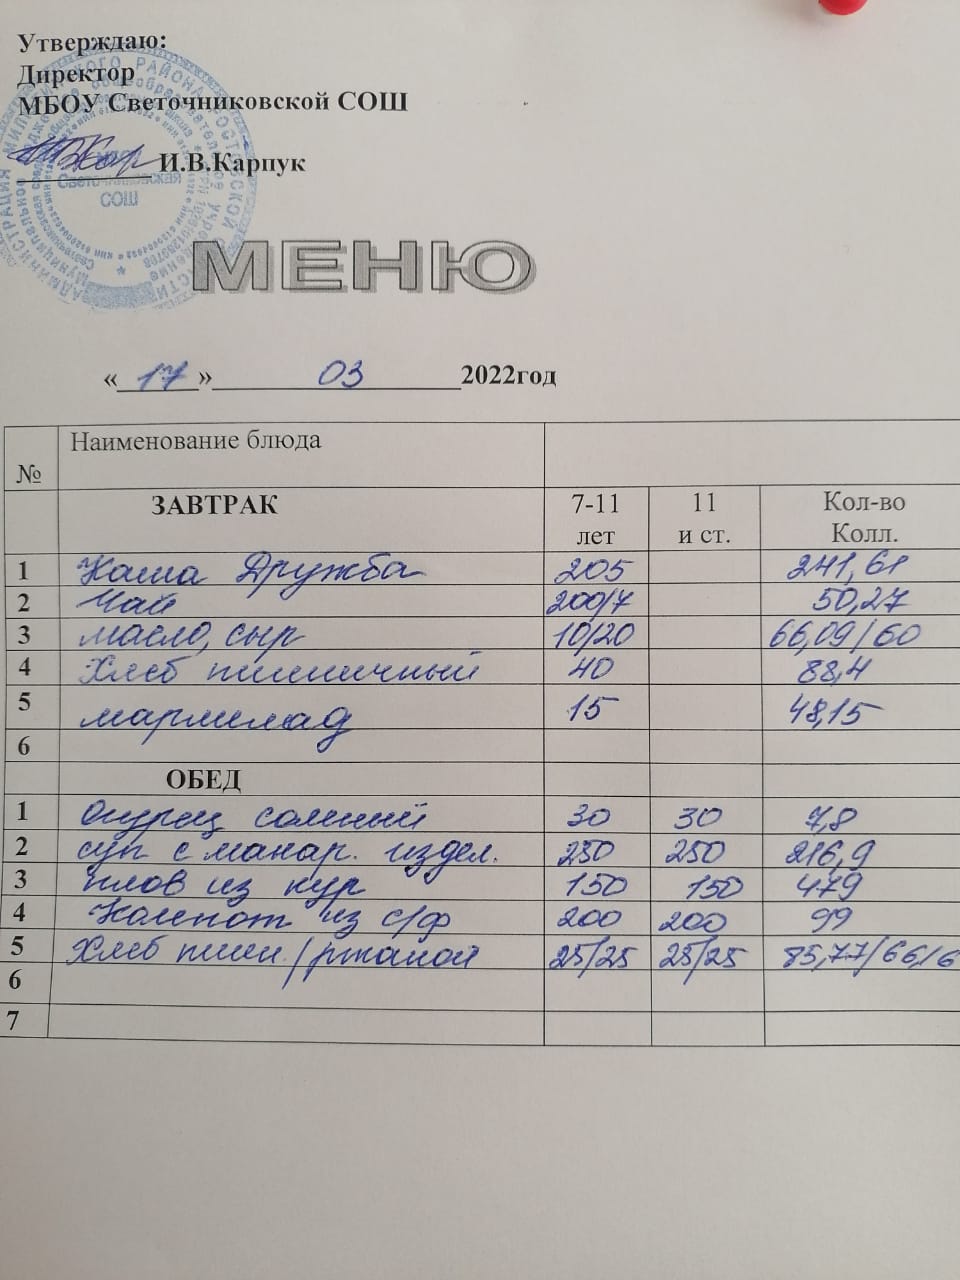 Утверждаю:
Директор
МБОУ Светочниковской СОШ
И.В.Карпук
СОШ
МЕНЮ
« 17 » 03 2022год
№ Наименование блюда
ЗАВТРАК 7-11 лет 11 и ст. Кол-во Колл.
1 Каша Дружба 205 241,61
2 Чай 200/7 50,27
3 масло, сыр 10/20 66,09/60
4 Хлеб пшеничный 40 88,4
5 мармелад 15 48,15
6
ОБЕД
1 Огурец соленый 30 30 7,8
2 суп с макар. издел. 250 250 216,9
3 плов из кур 150 150 479
4 Компот из с/ф 200 200 99
5 Хлеб пшен./ржаной 25/25 25/25 85,77/66,6
6
7